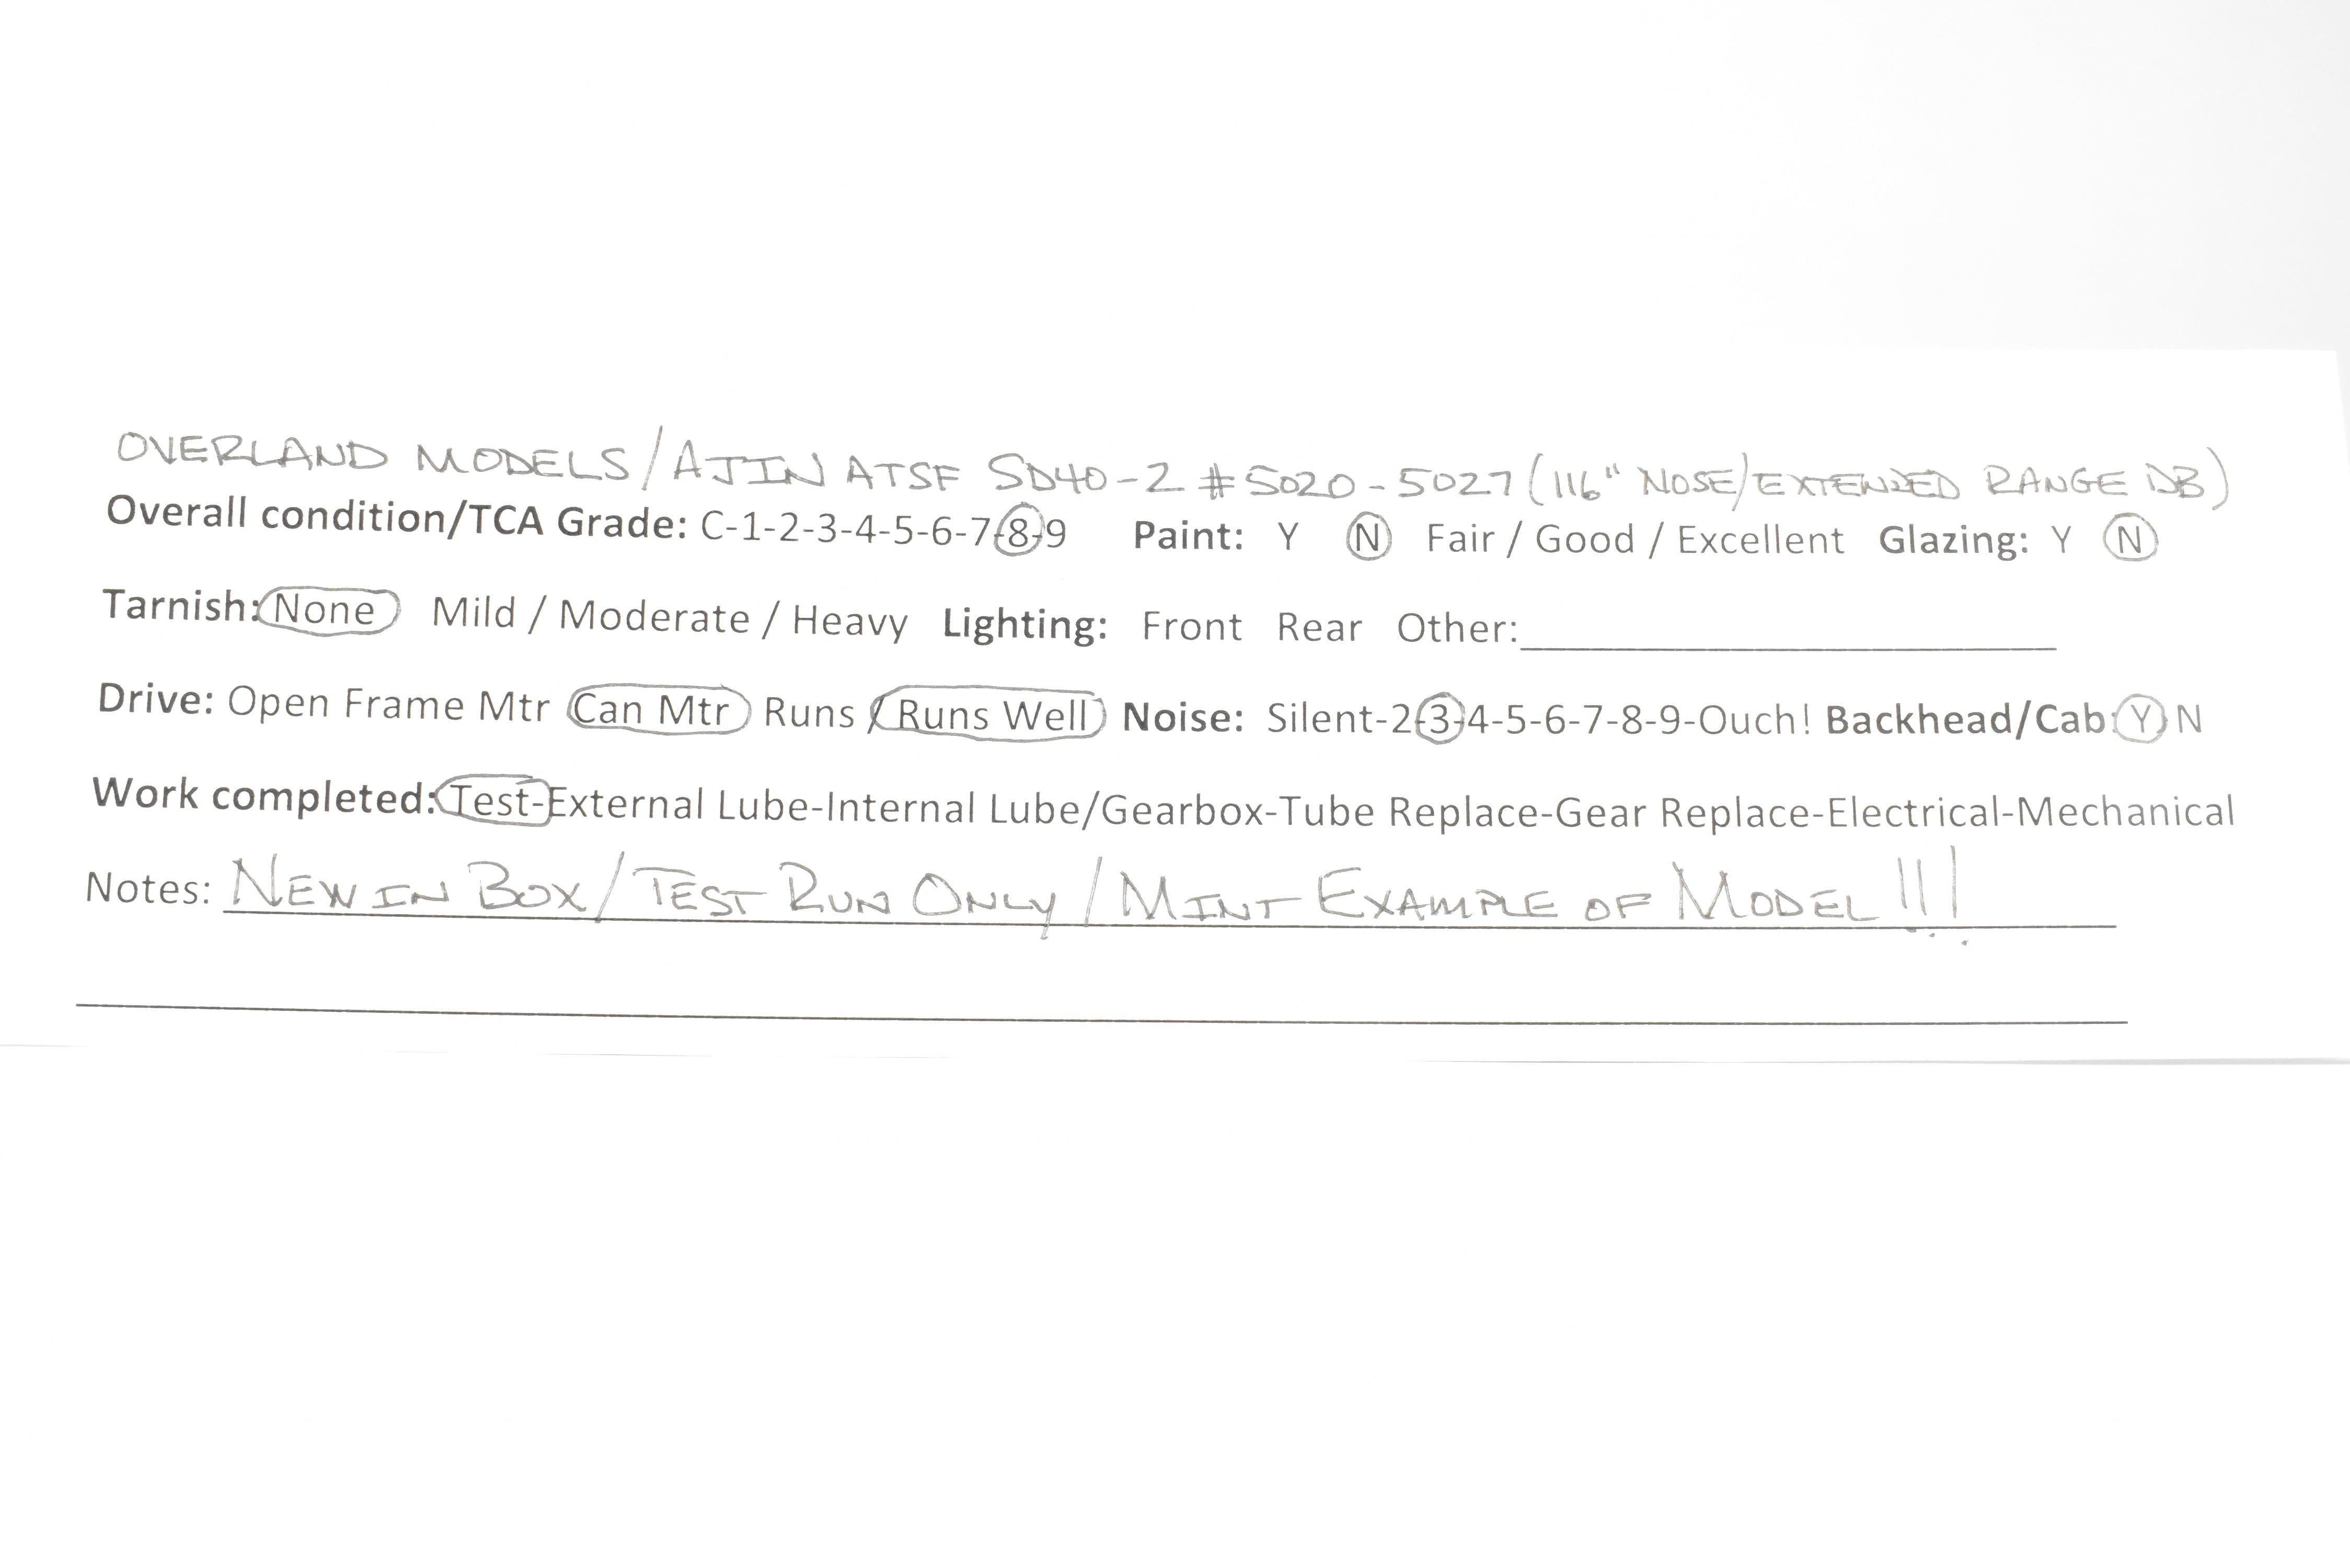 OVERLAND MODELS/AJIN ATSF SD40-2 #5020-5027 (116" NOSE/EXTENDED RANGE DB)
Overall condition/TCA Grade: C-1-2-3-4-5-6-7-8-9 Paint: Y N Fair / Good / Excellent Glazing: Y N
Tarnish: None Mild / Moderate / Heavy Lighting: Front Rear Other:
Drive: Open Frame Mtr Can Mtr Runs / Runs Well Noise: Silent-2-3-4-5-6-7-8-9-Ouch! Backhead/Cab: Y N
Work completed: Test-External Lube-Internal Lube/Gearbox-Tube Replace-Gear Replace-Electrical-Mechanical
Notes: NEW IN BOX/TEST RUN ONLY/MINT EXAMPLE OF MODEL!!!